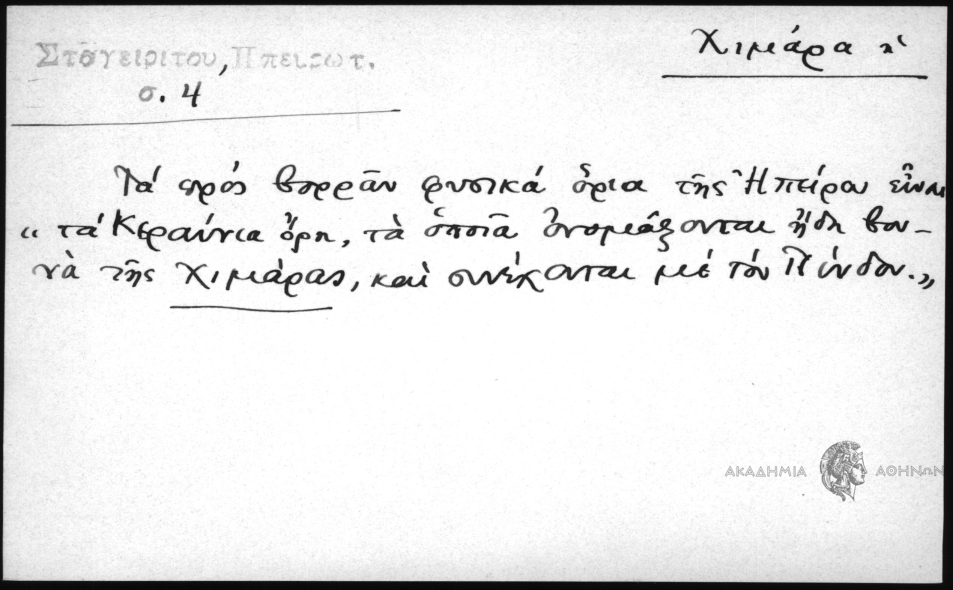 Σταγειρίτου, Ἠπειρωτ.
σ. 4
Χιμάρα ἡ
Τά πρός βορρᾶν φυσικά ὅρια τῆς Ἠπείρου εἶναι
„ τά Κεραύνια ὄρη, τὰ ὁποῖα ὀνομάζονται ἤδη βου-
νὰ τῆς Χιμάρας, καὶ συνέχονται μέ τόν Πίνδον.„
ΑΚΑΔΗΜΙΑ ΑΘΗΝΩΝ